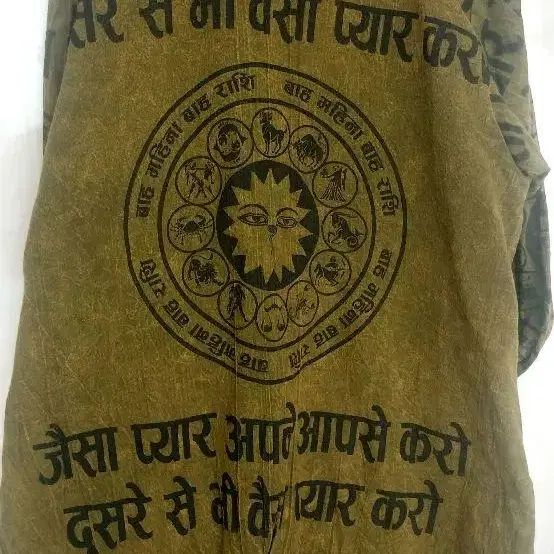 सरे से भी वैसा प्यार करो
बाह महिना बाह राशि
बाह महिना बाह राशि
बाह महिना बाह राशि
बाह महिना बाह राशि
जैसा प्यार अपने आपसे करो
दुसरे से भी प्यार करो